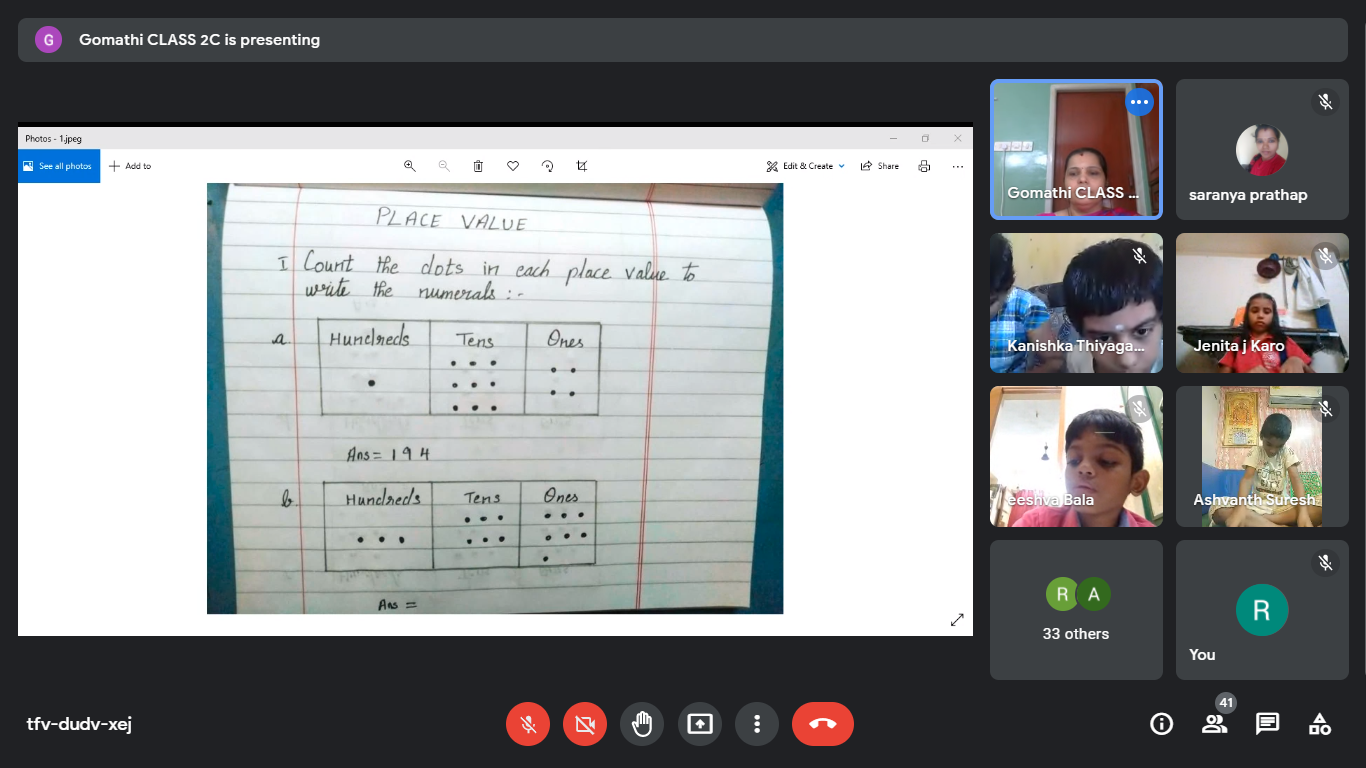 G Gomathi CLASS 2C is presenting
Photos - 1.jpeg
See all photos + Add to Edit & Create Share
PLACE VALUE
I Count the dots in each place value to
write the numerals :-
a. Hundreds Tens Ones
Ans = 194
b. Hundreds Tens Ones
Ans =
Gomathi CLASS ...
saranya prathap
Kanishka Thiyaga...
Jenita j Karo
eeshva Bala
Ashvanth Suresh
R A
33 others
R
You
tfv-dudv-xej
41